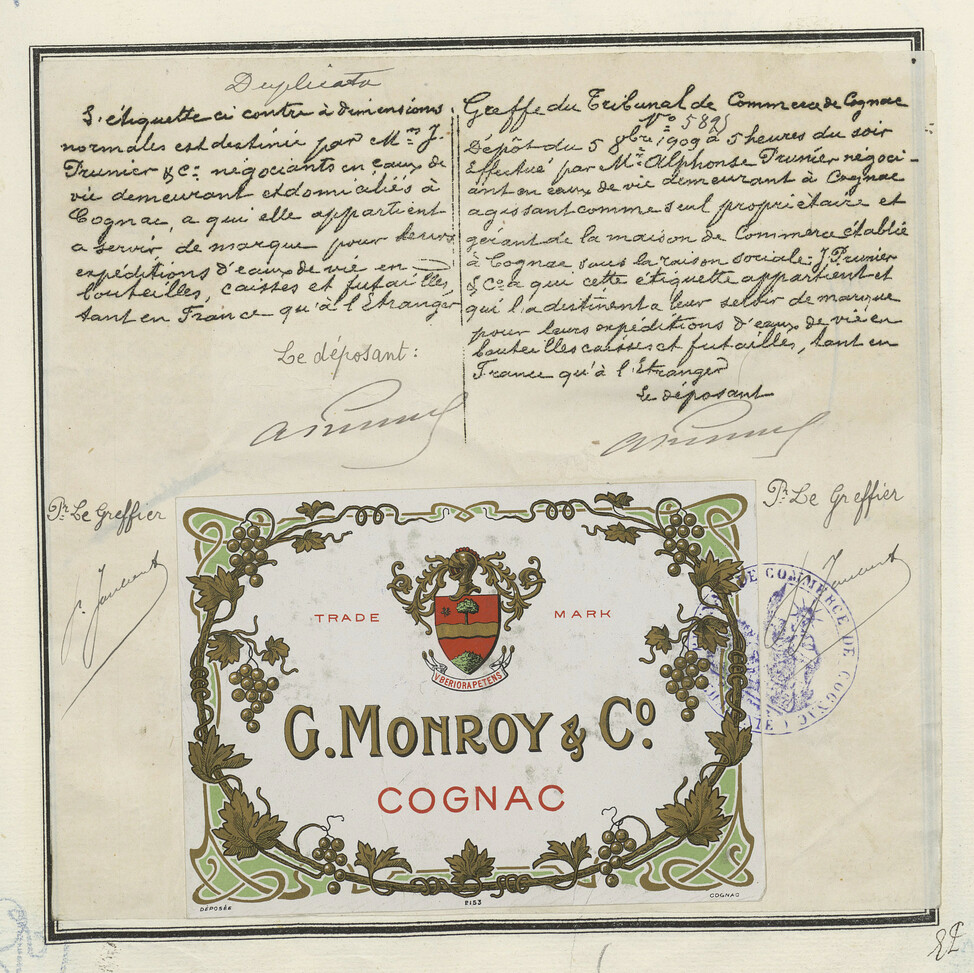 Duplicata
L'étiquette ci contre à dimensions
normales est destinée par Mrs J.
Prunier & Co. négociants en eaux de
vie demeurant et domiciliés à
Cognac, a qui elle appartient
a servir de marque pour leurs
expéditions d'eaux de vie en
bouteilles, caisses et futailles,
tant en France qu'à l'Etranger
Le déposant:
Greffe du Tribunal de Commerce de Cognac
No 589
Dépôt du 5 8bre 1909 à 5 heures du soir
Effectué par Mr Alphonse Prunier négoci-
ant en eaux de vie demeurant à Cognac
agissant comme seul propriétaire et
gérant de la maison de Commerce établie
à Cognac sous la raison sociale: J. Prunier
& Co a qui cette étiquette appartient et
qui la destinent a leur servir de marque
pour leurs expéditions d'eaux de vie en
bouteilles caisses et futailles, tant en
France qu'à l'Etranger
Le déposant
Pr. Le Greffier
Pr. Le Greffier
TRADE MARK
VBERIORA PETENS
G. MONROY & Co.
COGNAC
DÉPOSÉE
2153
COGNAC
DE COMMERCE DE COGNAC